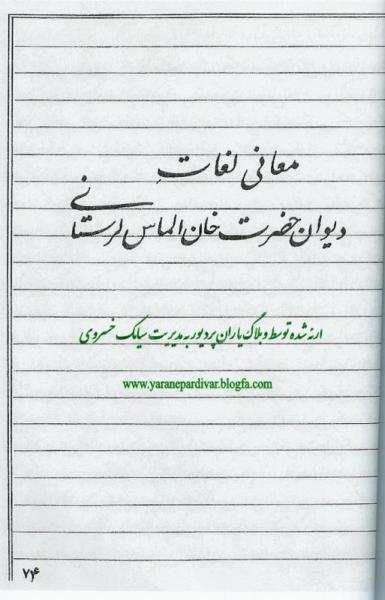 معانی لغات
دیوان حضرت خان الماس لرستانی
ارئه شده توسط وبلاگ یاران پردیور به مدیریت سیامک خسروی
www.yaranepardivar.blogfa.com
۷۴